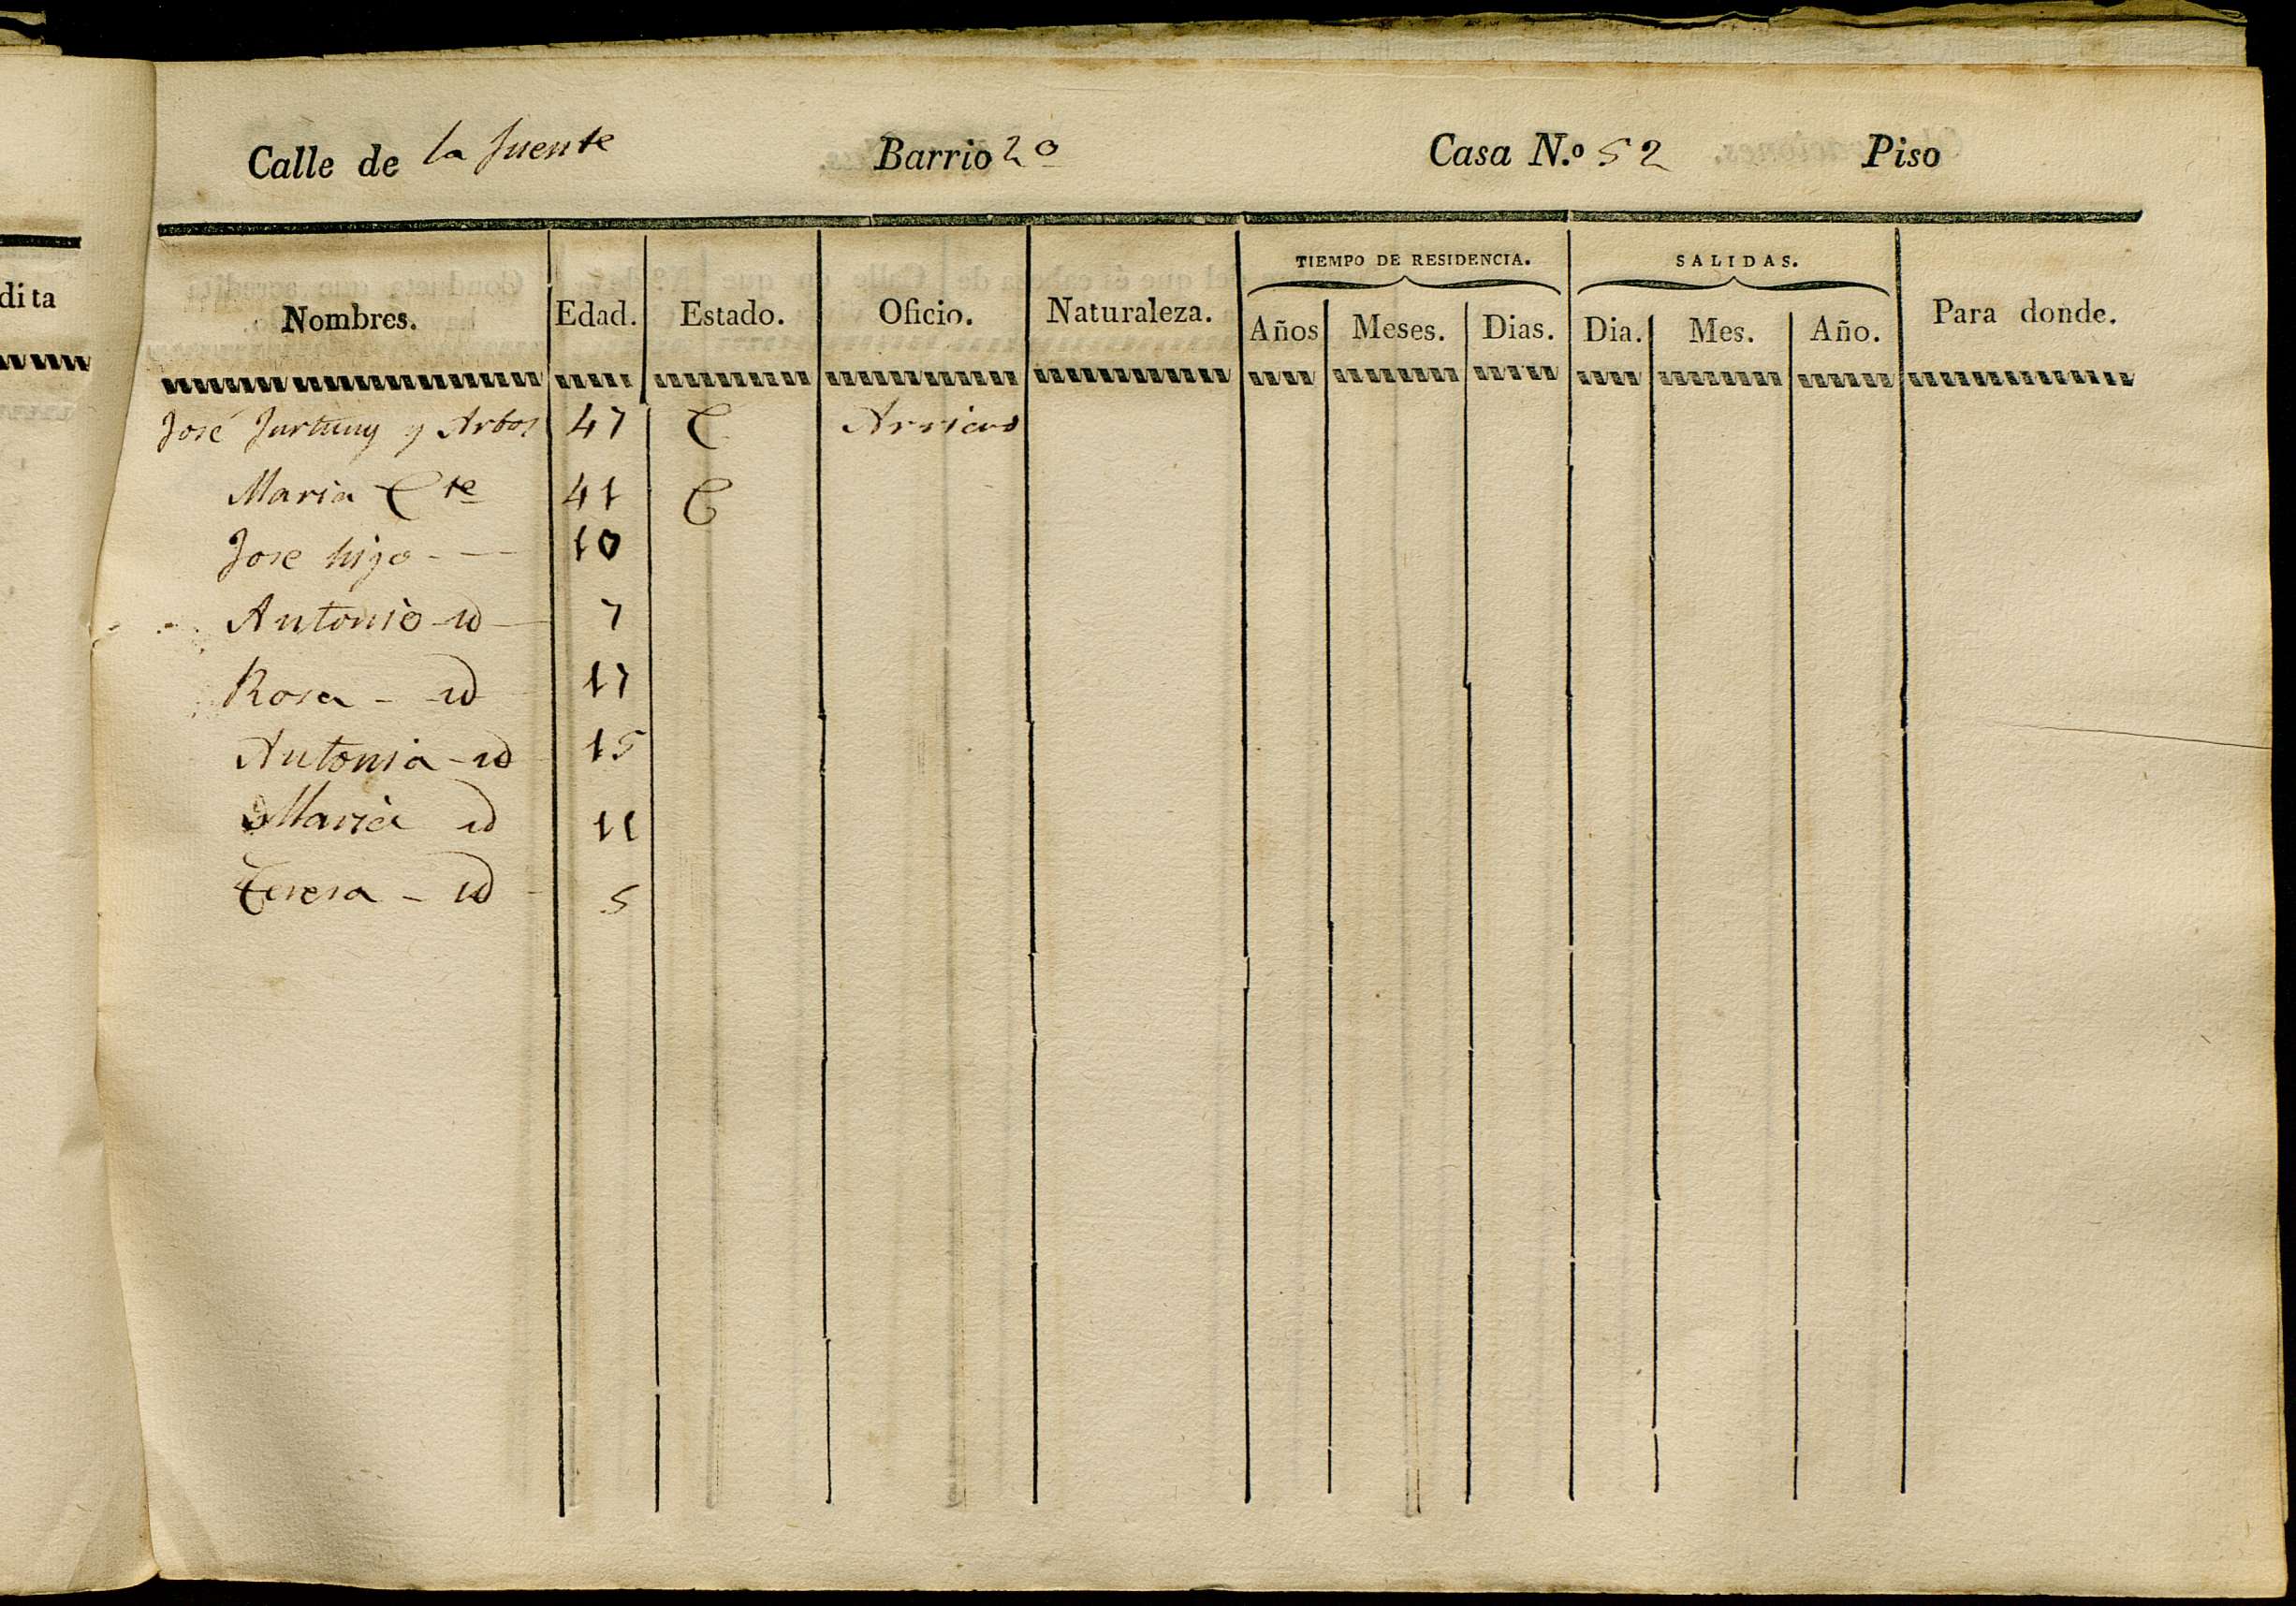 dita
Calle de la fuente Barrio 2º Casa N.º 52 Piso
TIEMPO DE RESIDENCIA. SALIDAS.
Nombres. Edad. Estado. Oficio. Naturaleza. Años Meses. Dias. Dia. Mes. Año. Para donde.
José Furtuny y Arbos 47 C Arriero
Maria Cte 41 C
Jose hijo - — 10
Antonio - id — 7
Rosa - id 17
Antonia - id 15
Maria id 11
Teresa - id - 5